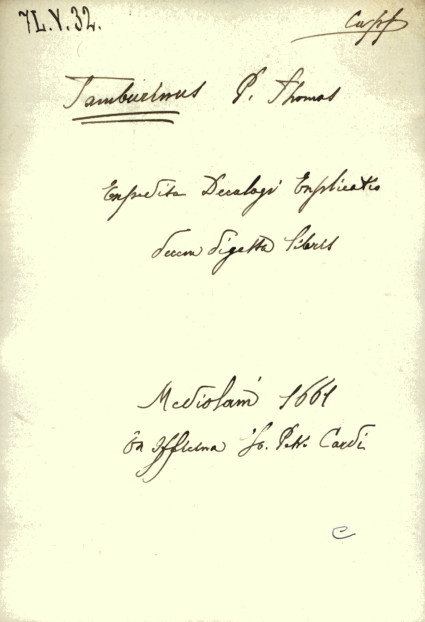 7L.V.32.
Tamburinus P. Thomas
Expedita Decalogi Explicatio
decem digesta libris
Mediolani 1661
Ex Officina Jo. Petri Cardi
C